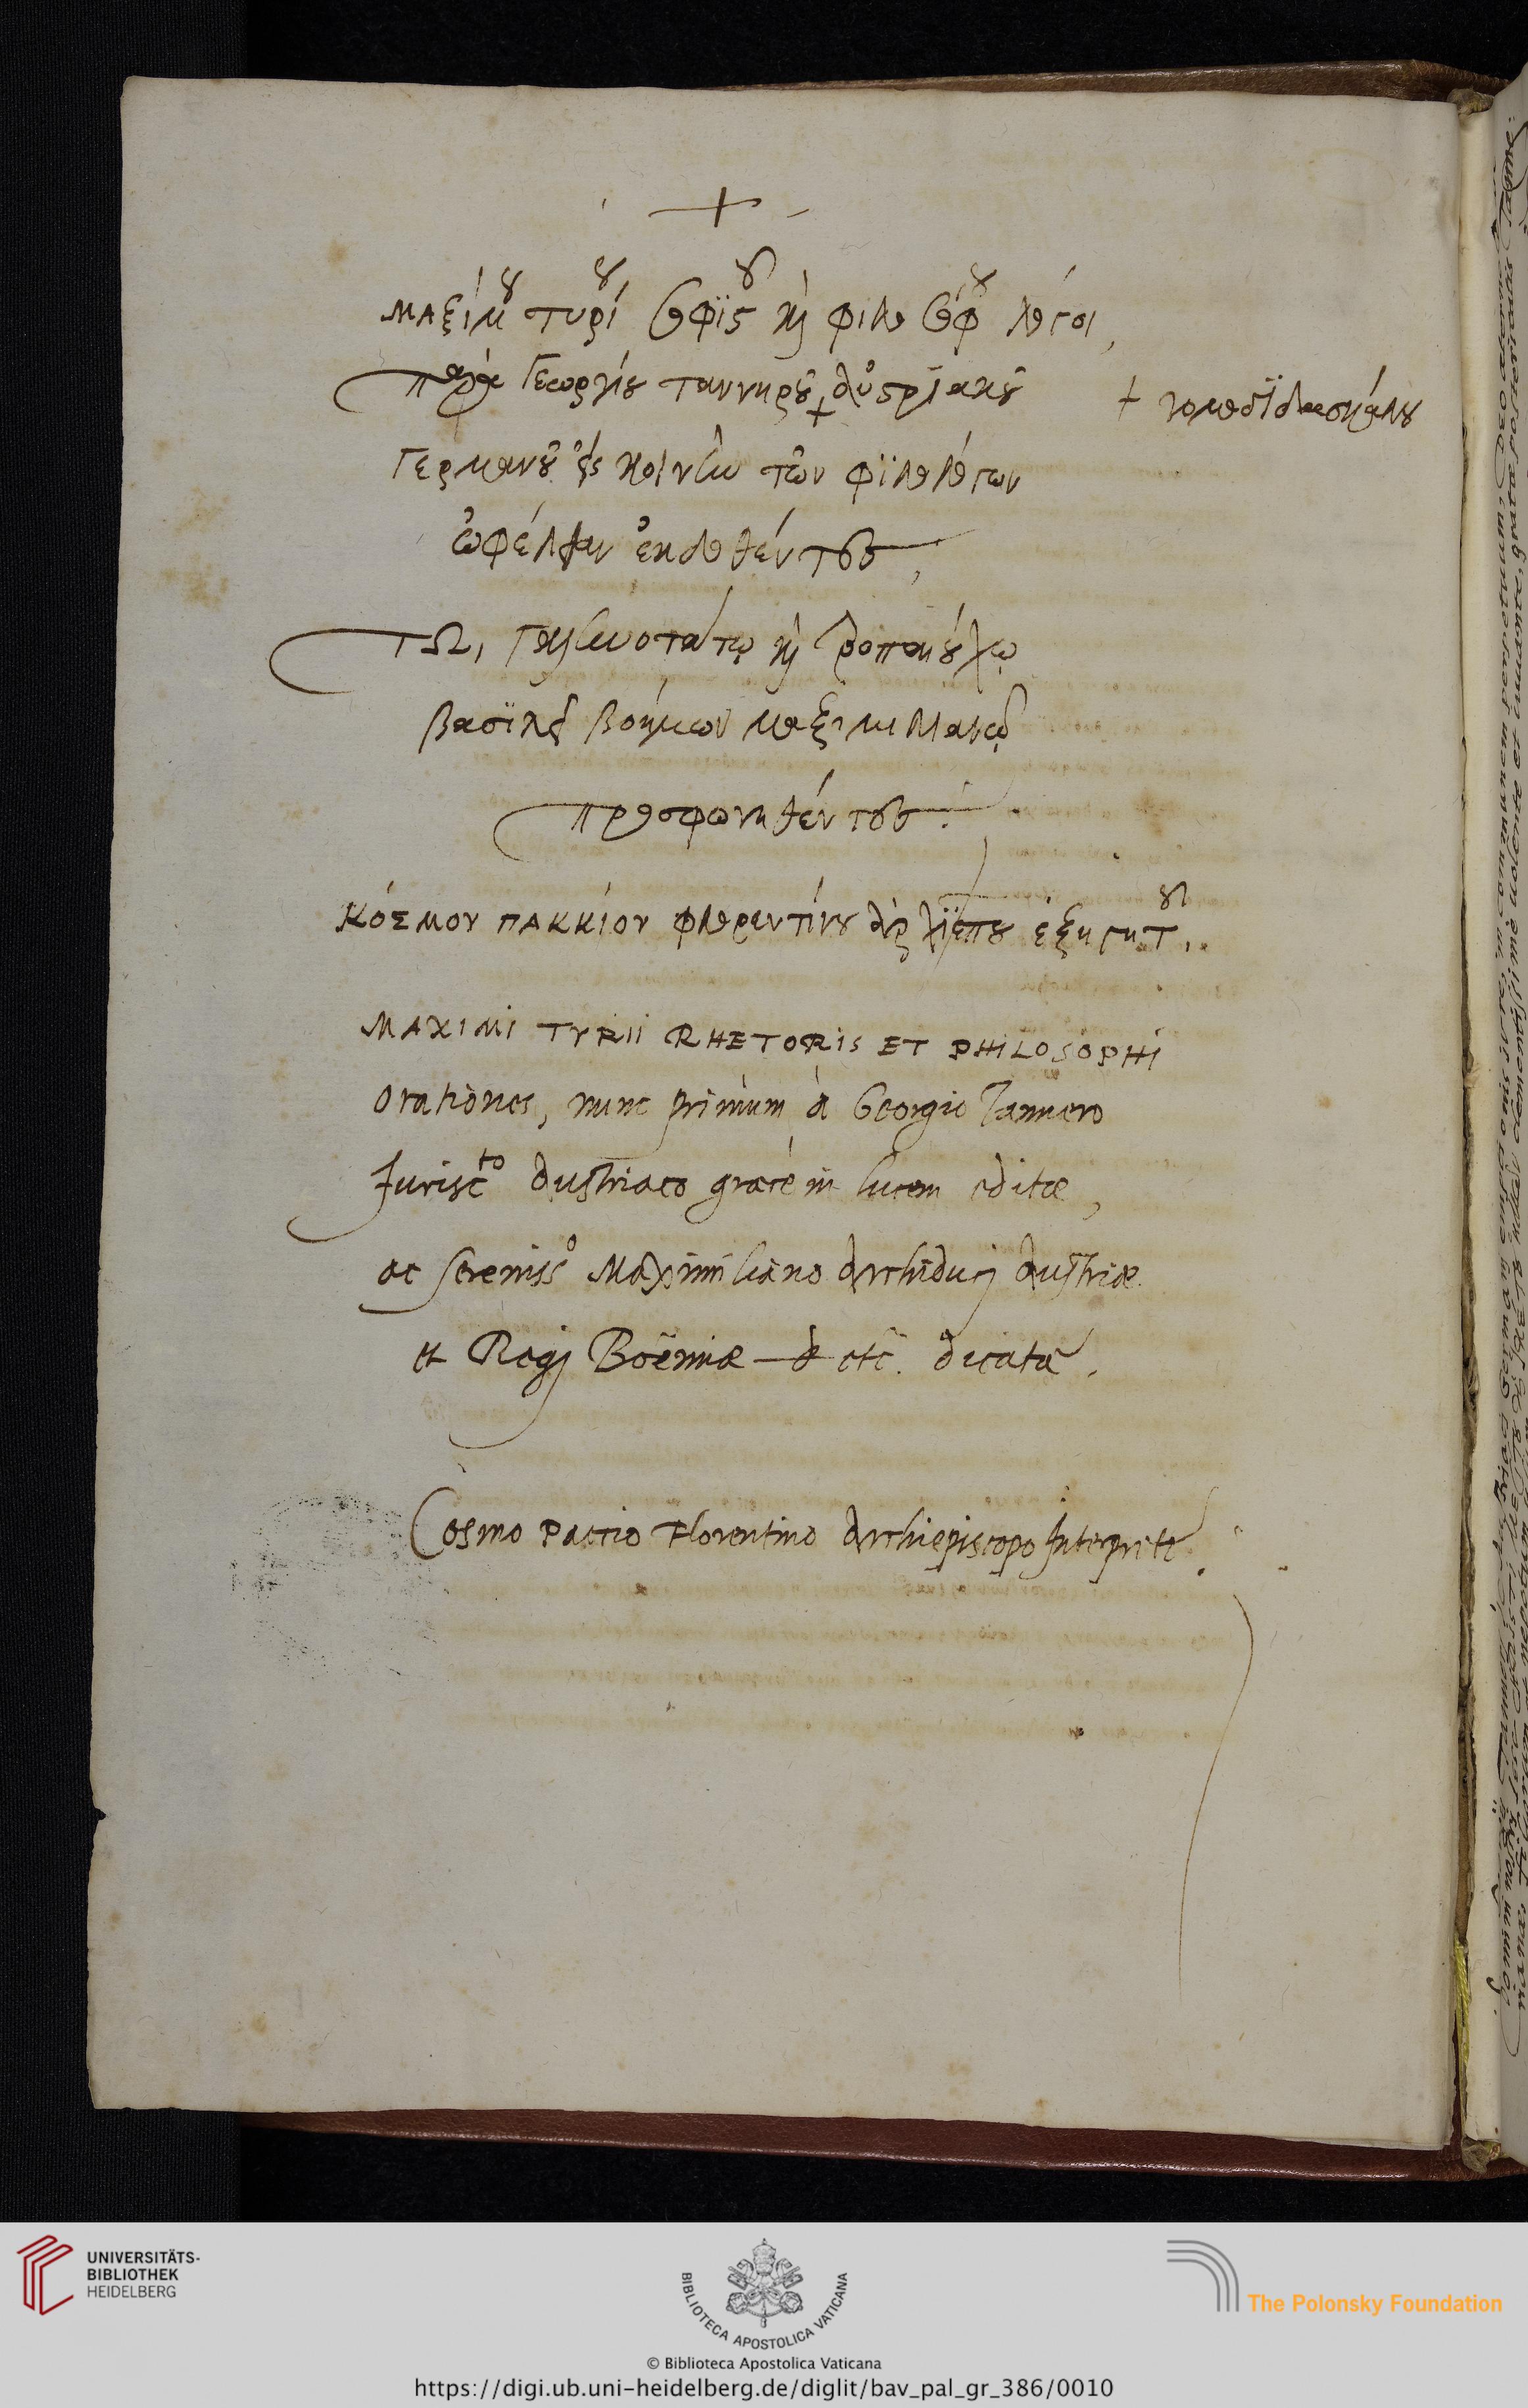 +
ΜΑξίμου τυρίου σοφιστοῦ καὶ φιλοσόφου λόγοι,
παρὰ Γεωργίου ταννηροῦ + αὐστριακοῦ
+ νομοδιδασκάλου
Γερμανοῦ εἰς κοινὴν τῶν φιλολόγων
ὠφέλειαν ἐκδοθέντες,
ΤΩι γαληνοτάτῳ καὶ
βασιλεῖ βοήμων μαξιμιλιανῷ
προσφωνηθέντες.
ΚόΣΜΟΥ ΠΑΚΚίΟΥ φλορεντίνου ἀρχιεπισκόπου ἐξηγητοῦ.
MAXIMI TYRII RHETORIS ET PHILOSOPHI
Orationes, nunc primùm à Georgio Tannero
Jurisc.to Austriaco græcè in lucem editæ,
ac sereniss.o Maximiliano Archiduci Austriæ
et Regi Boëmiæ etc. dicatæ.
Cosmo Paccio Florentino Archiepiscopo Interprete.
UNIVERSITÄTS-
BIBLIOTHEK
HEIDELBERG
BIBLIOTECA APOSTOLICA VATICANA
The Polonsky Foundation
© Biblioteca Apostolica Vaticana
https://digi.ub.uni-heidelberg.de/diglit/bav_pal_gr_386/0010